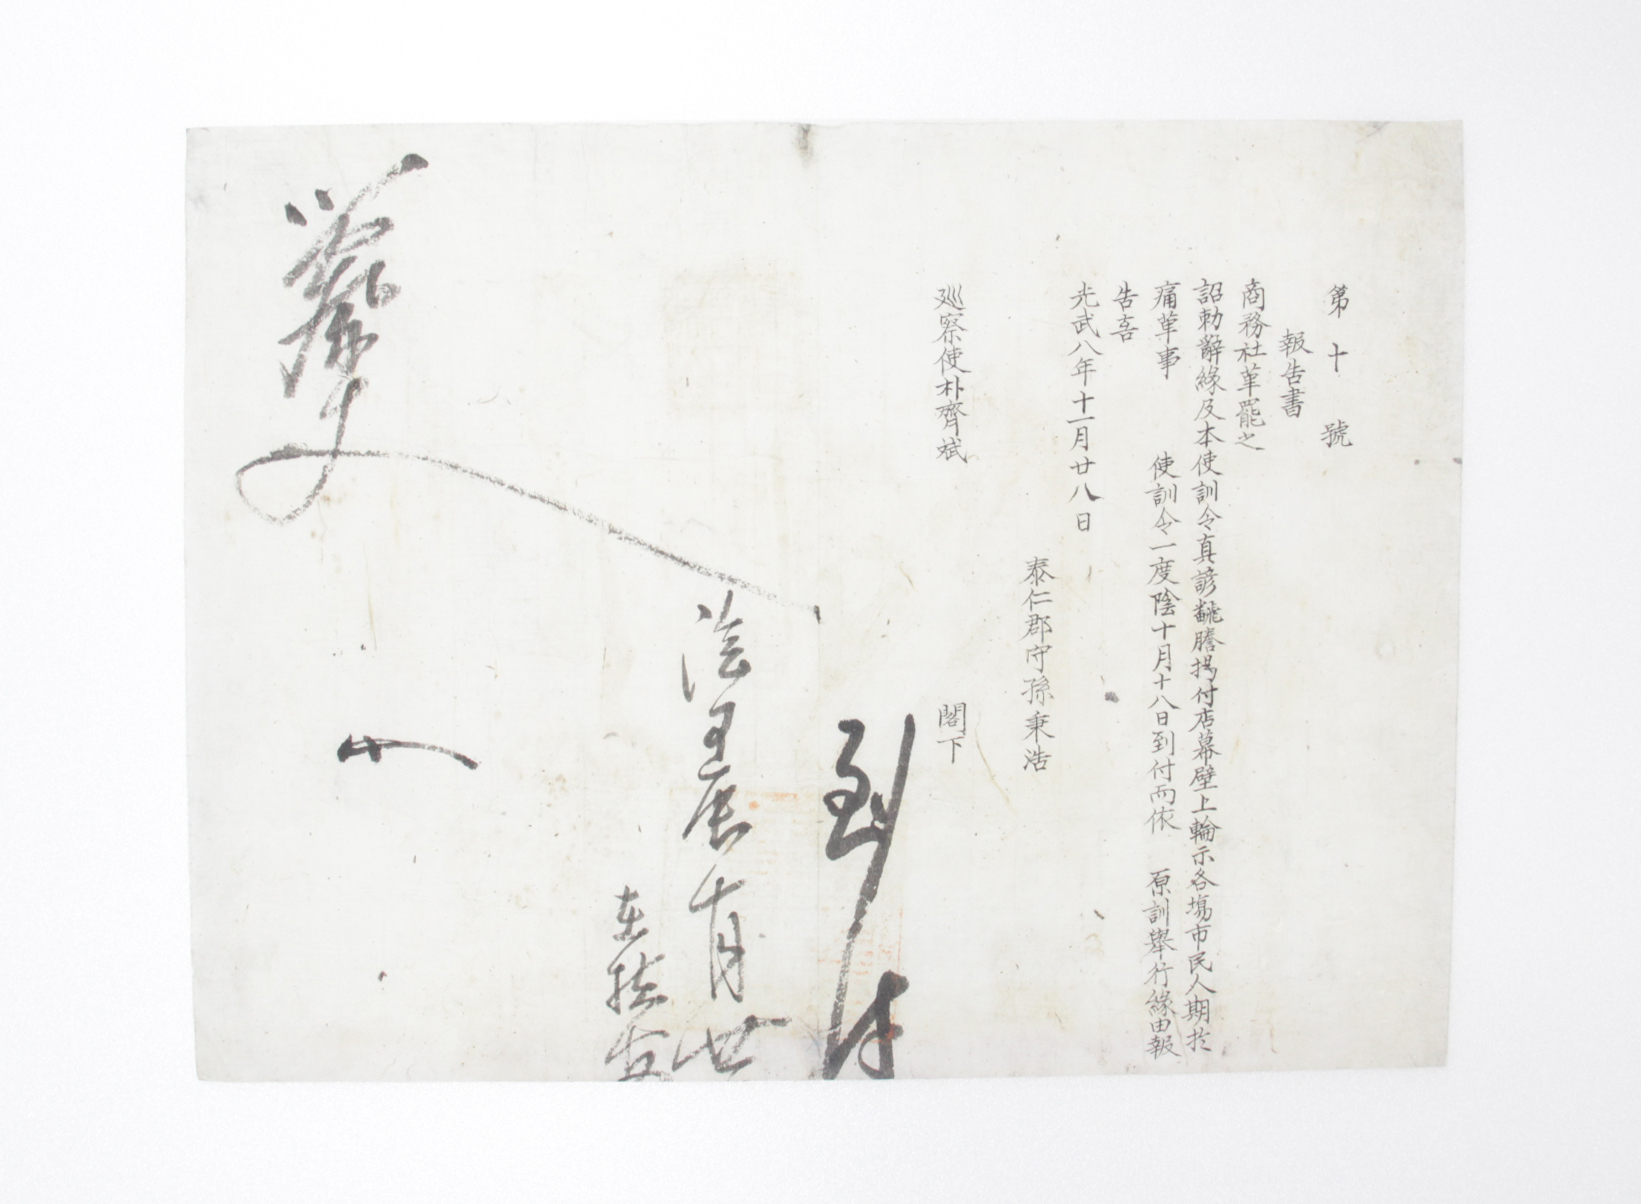 第十號
報告書
商務社革罷之
詔勅辭緣及本使訓令真諺飜謄揭付店幕壁上輪示各塲市民人期於
痛革事 使訓令一度陰十月十八日到付而依 原訓舉行緣由報
告喜
光武八年十一月廿八日
泰仁郡守孫秉浩
廵察使朴齊斌 閣下
到付
陰 辰十月廿
在扶安